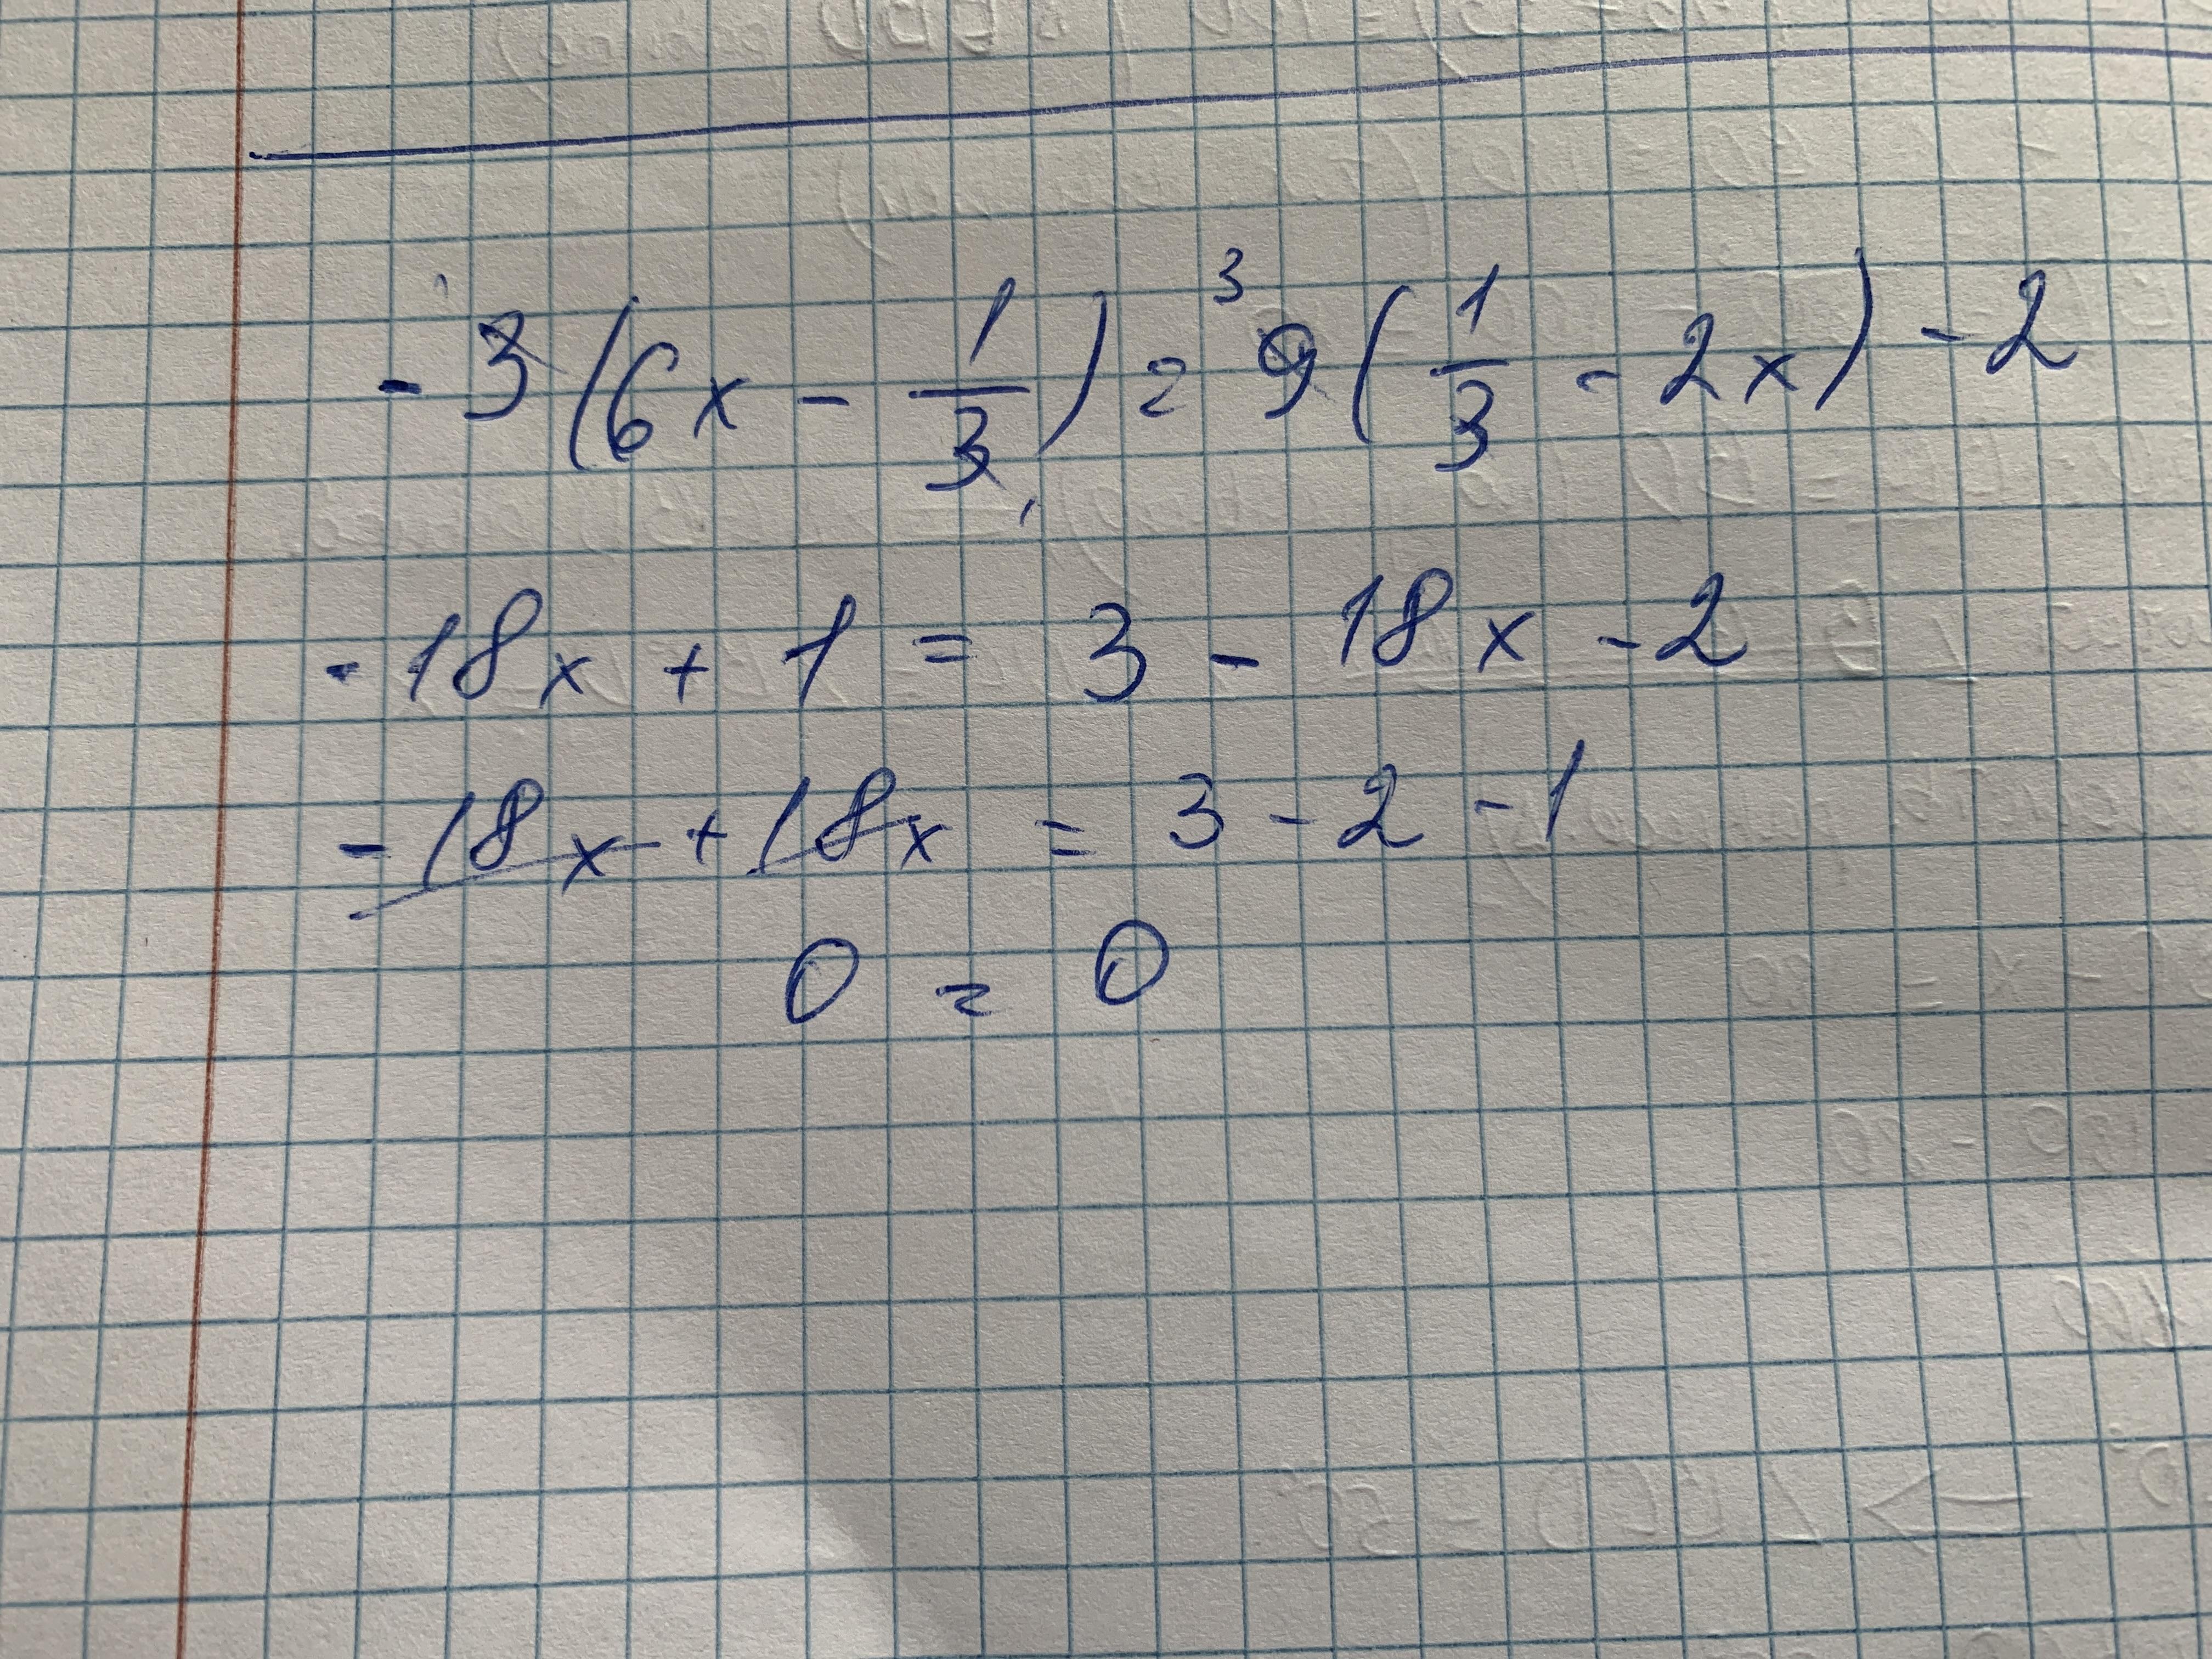 -3(6x - 1/3) = 9(1/3 - 2x) - 2
-18x + 1 = 3 - 18x - 2
-18x + 18x = 3 - 2 - 1
0 = 0